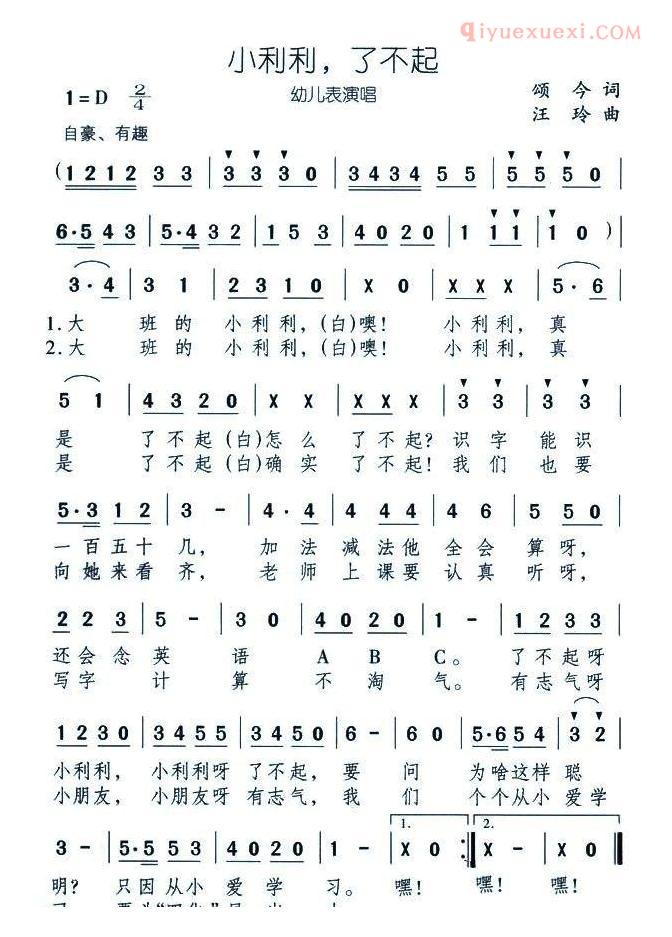 qiyuexuexi.com
小利利，了不起
1=D 2/4
幼儿表演唱
颂 今 词
汪 玲 曲
自豪、有趣
(1212 33 | 3330 | 3434 55 | 5550 |
6·543 | 5·432 | 153 | 4020 | 1 11 | 10 ) |
3·4 | 31 | 2310 | X0 | XXX | 5·6 |
1.大 班的 小利利，(白)噢！ 小利利，真
2.大 班的 小利利，(白)噢！ 小利利，真
51 | 4320 | XX | XXX | 33 | 33 |
是 了不起(白)怎么 了不起？识字能识
是 了不起(白)确实 了不起！我们也要
5·312 | 3- | 4·4 | 444 | 46 | 550 |
一百五十几， 加法减法他 全会 算呀，
向她来看齐， 老师上课要 认真 听呀，
223 | 5- | 30 | 4020 | 1- | 1233 |
还会念英 语 A B C。 了不起呀
写字 计 算 不 淘 气。 有志气呀
1230 | 3455 | 3450 | 6- | 6- | 5·654 | 32 |
小利利， 小利利呀 了不起， 要 问 为啥这样 聪
小朋友， 小朋友呀 有志气， 我 们 个个从小 爱学
3- | 5·553 | 4020 | 1- | 1. X0 :| 2. X0 ‖
明？ 只因从小 爱 学 习。 嘿！ 嘿！ 嘿！